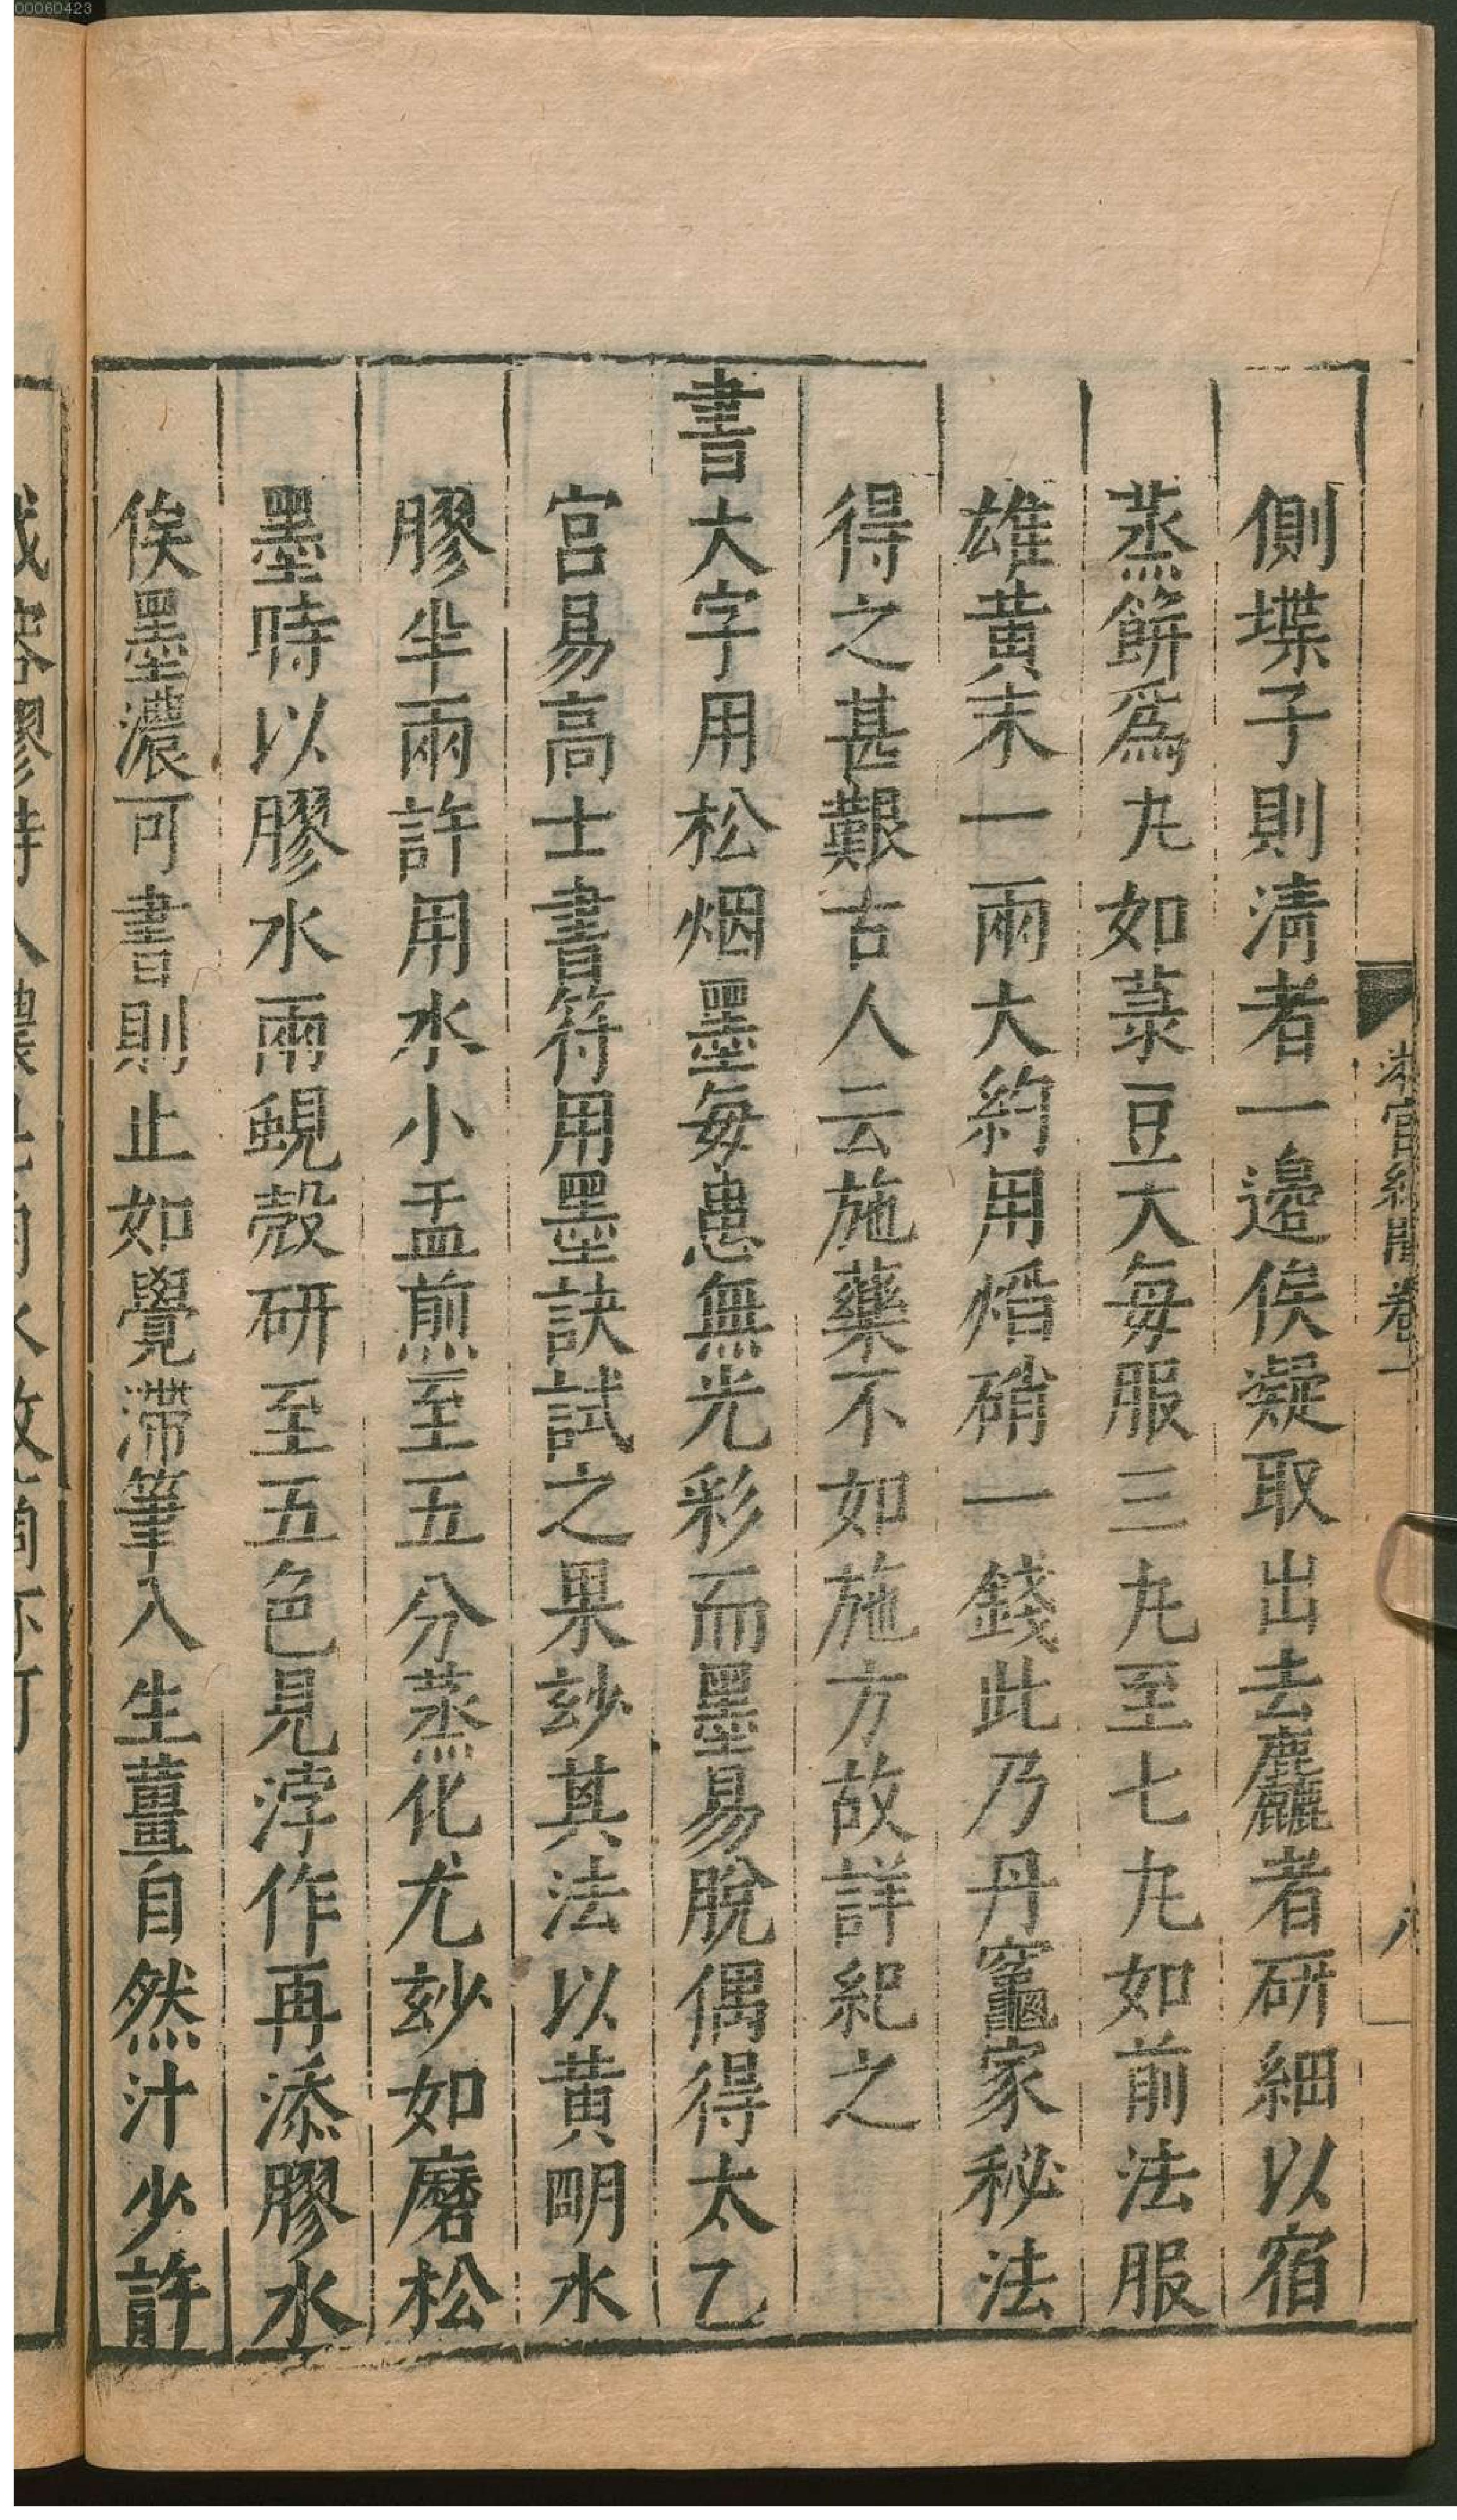 00060423
側堞子則淸者一邉俟凝取出去麤者研細以宿
蒸餅爲丸如菉豆大每服三丸至七丸如前法服
雄黃末一兩大約用熖硝一錢此乃丹竈家秘法
得之甚艱古人云施藥不如施方故詳紀之
書大字用松烟墨每患無光彩而墨易脫偶得太乙
宮易高士書符用墨訣試之果玅其法以黃明水
膠半兩許用水小盂煎至五分蒸化尤玅如磨松
墨時以膠水兩蜆殼研至五色見浮作再添膠水
俟墨濃可書則止如覺滯筆入生薑自然汁少許